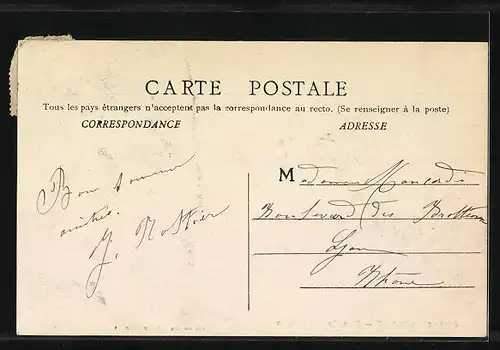 CARTE POSTALE
Tous les pays étrangers n'acceptent pas la correspondance au recto. (Se renseigner à la poste)
CORRESPONDANCE
ADRESSE
Bon
J.
Madame
Boulevard des Brotteaux
Lyon
Rhône